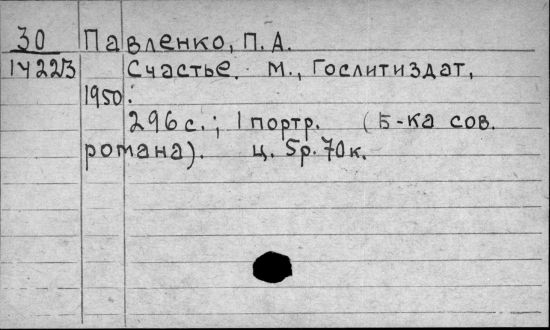 30 Павленко, П. А.
14223 Счастье. М., Гослитиздат,
1950.
296 с.; 1 портр. (Б-ка сов.
романа). ц. 5р. 70к.